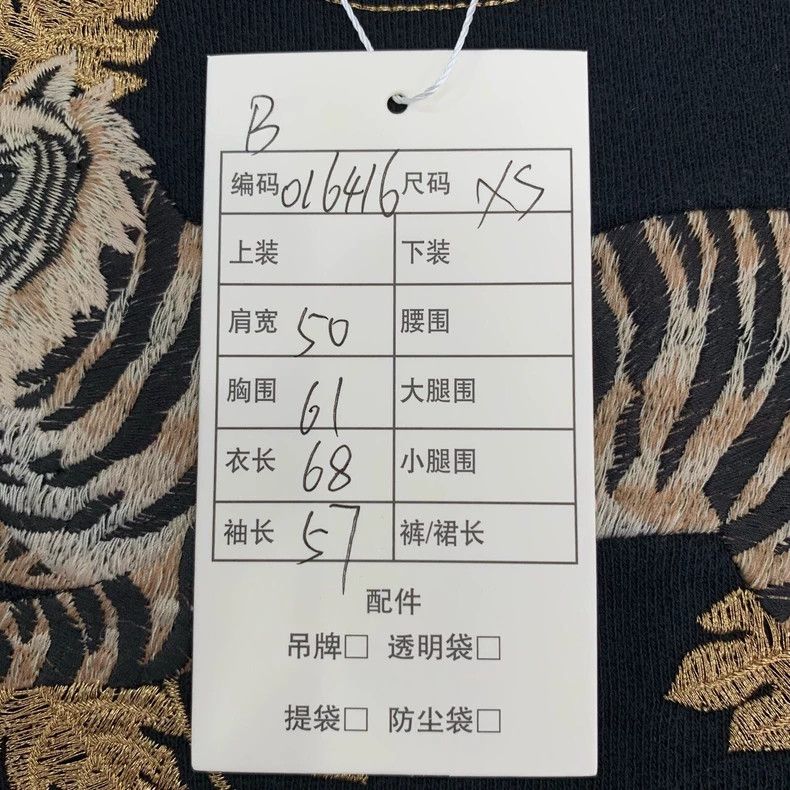 B
编码 016416 尺码 XS
上装 下装
肩宽 50 腰围
胸围 61 大腿围
衣长 68 小腿围
袖长 57 裤/裙长
配件
吊牌□ 透明袋□
提袋□ 防尘袋□